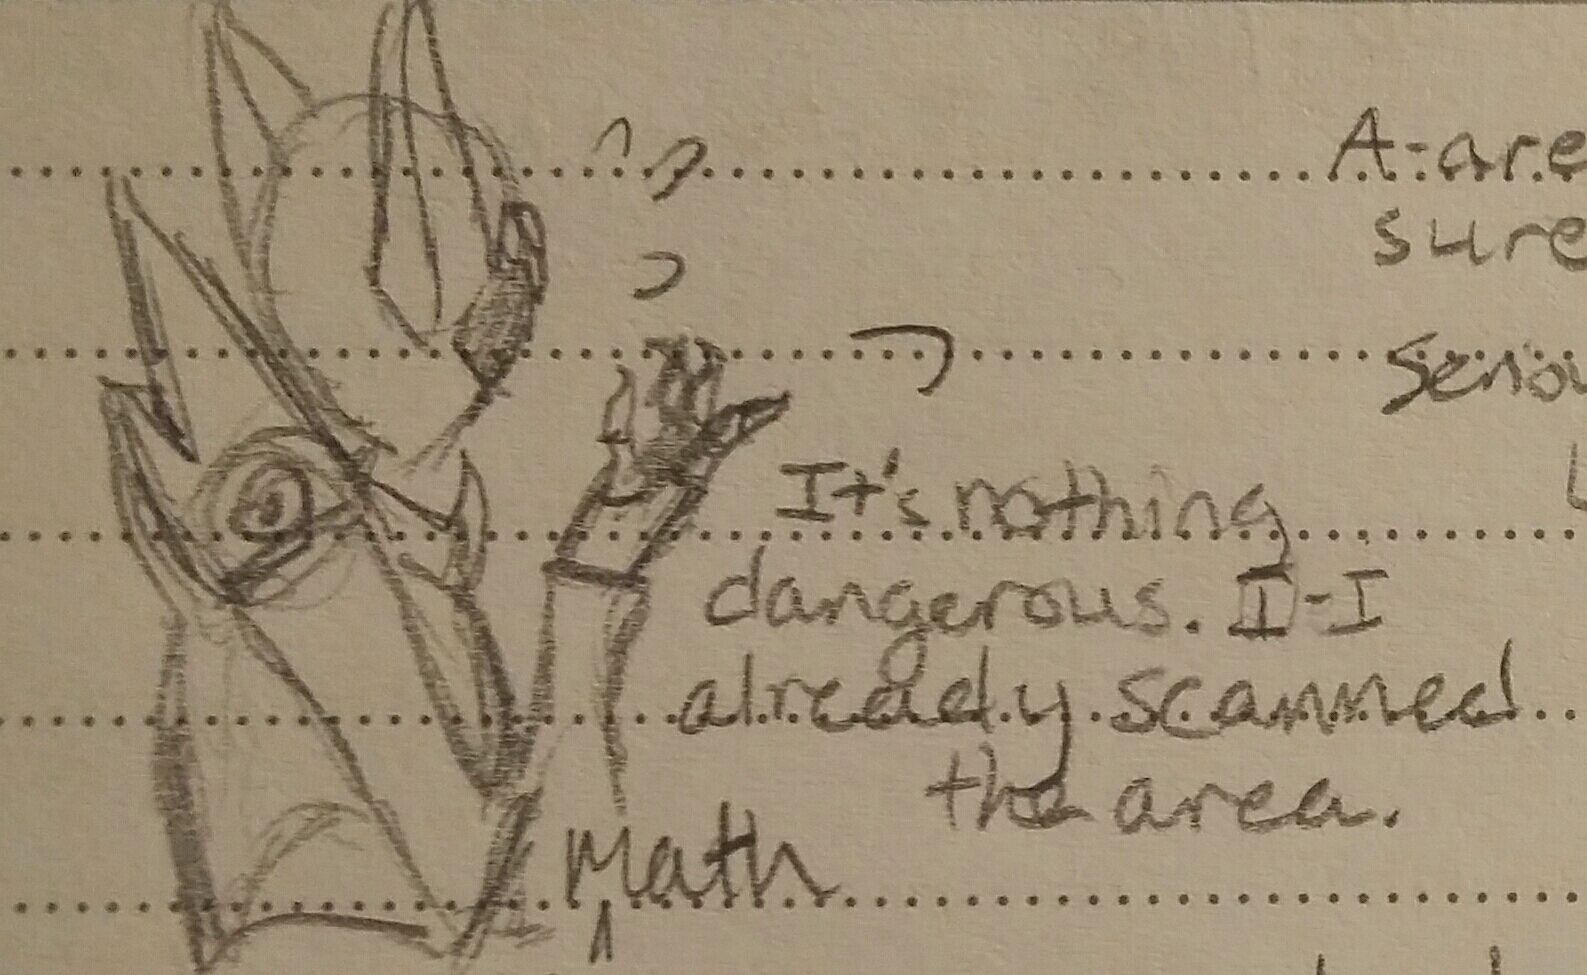 A-are
sure
It's nothing
dangerous. I-I
already scanned
the area.
Math